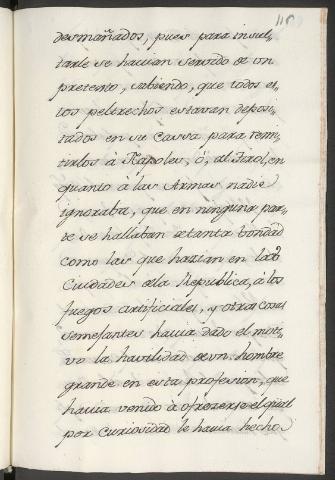 116
desmañados, pues para insul-
tarle se havian servido de un
pretexto, sabiendo, que todos es-
tos peltrechos estavan deposi-
tados en su Cassa para remi-
tirlos à Napoles, ó, al Tirol, en
quanto à las Armas nadie
ignoraba, que en ninguna par-
te se hallaban de tanta bondad
como las que hazian en las
Ciudades de la Republica, à los
fuegos artificiales, y otras cosas
semejantes havia dado el moti-
vo la havilidad de un hombre
grande en esta profesion, que
havia venido à ofrezerse el qual
por curiosidad le havia hecho